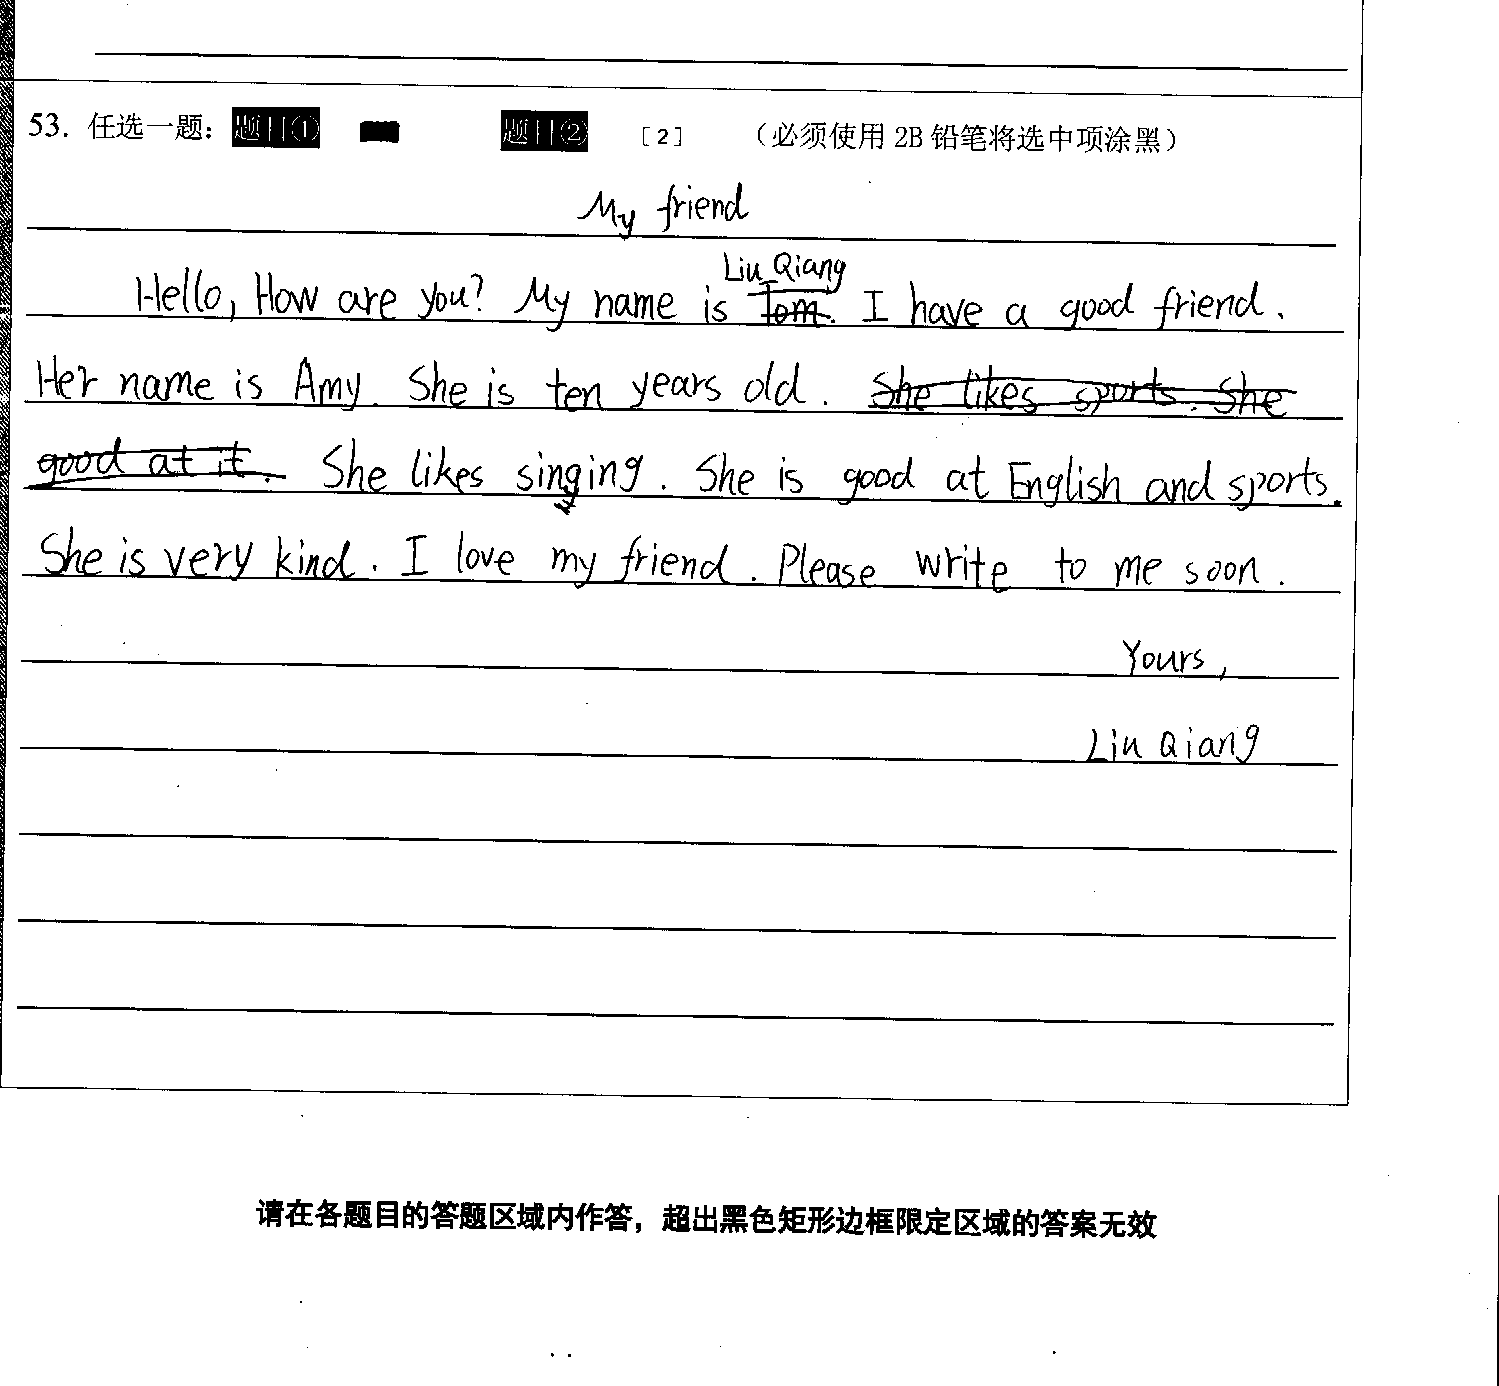 53. 任选一题: 题目① 题目② [2] (必须使用 2B 铅笔将选中项涂黑)
My friend
Liu Qiang
Hello, How are you? My name is Tom. I have a good friend.
Her name is Amy. She is ten years old. She likes sports. She
good at it. She likes singing. She is good at English and sports.
She is very kind. I love my friend. Please write to me soon.
Yours,
Liu Qiang
请在各题目的答题区域内作答，超出黑色矩形边框限定区域的答案无效